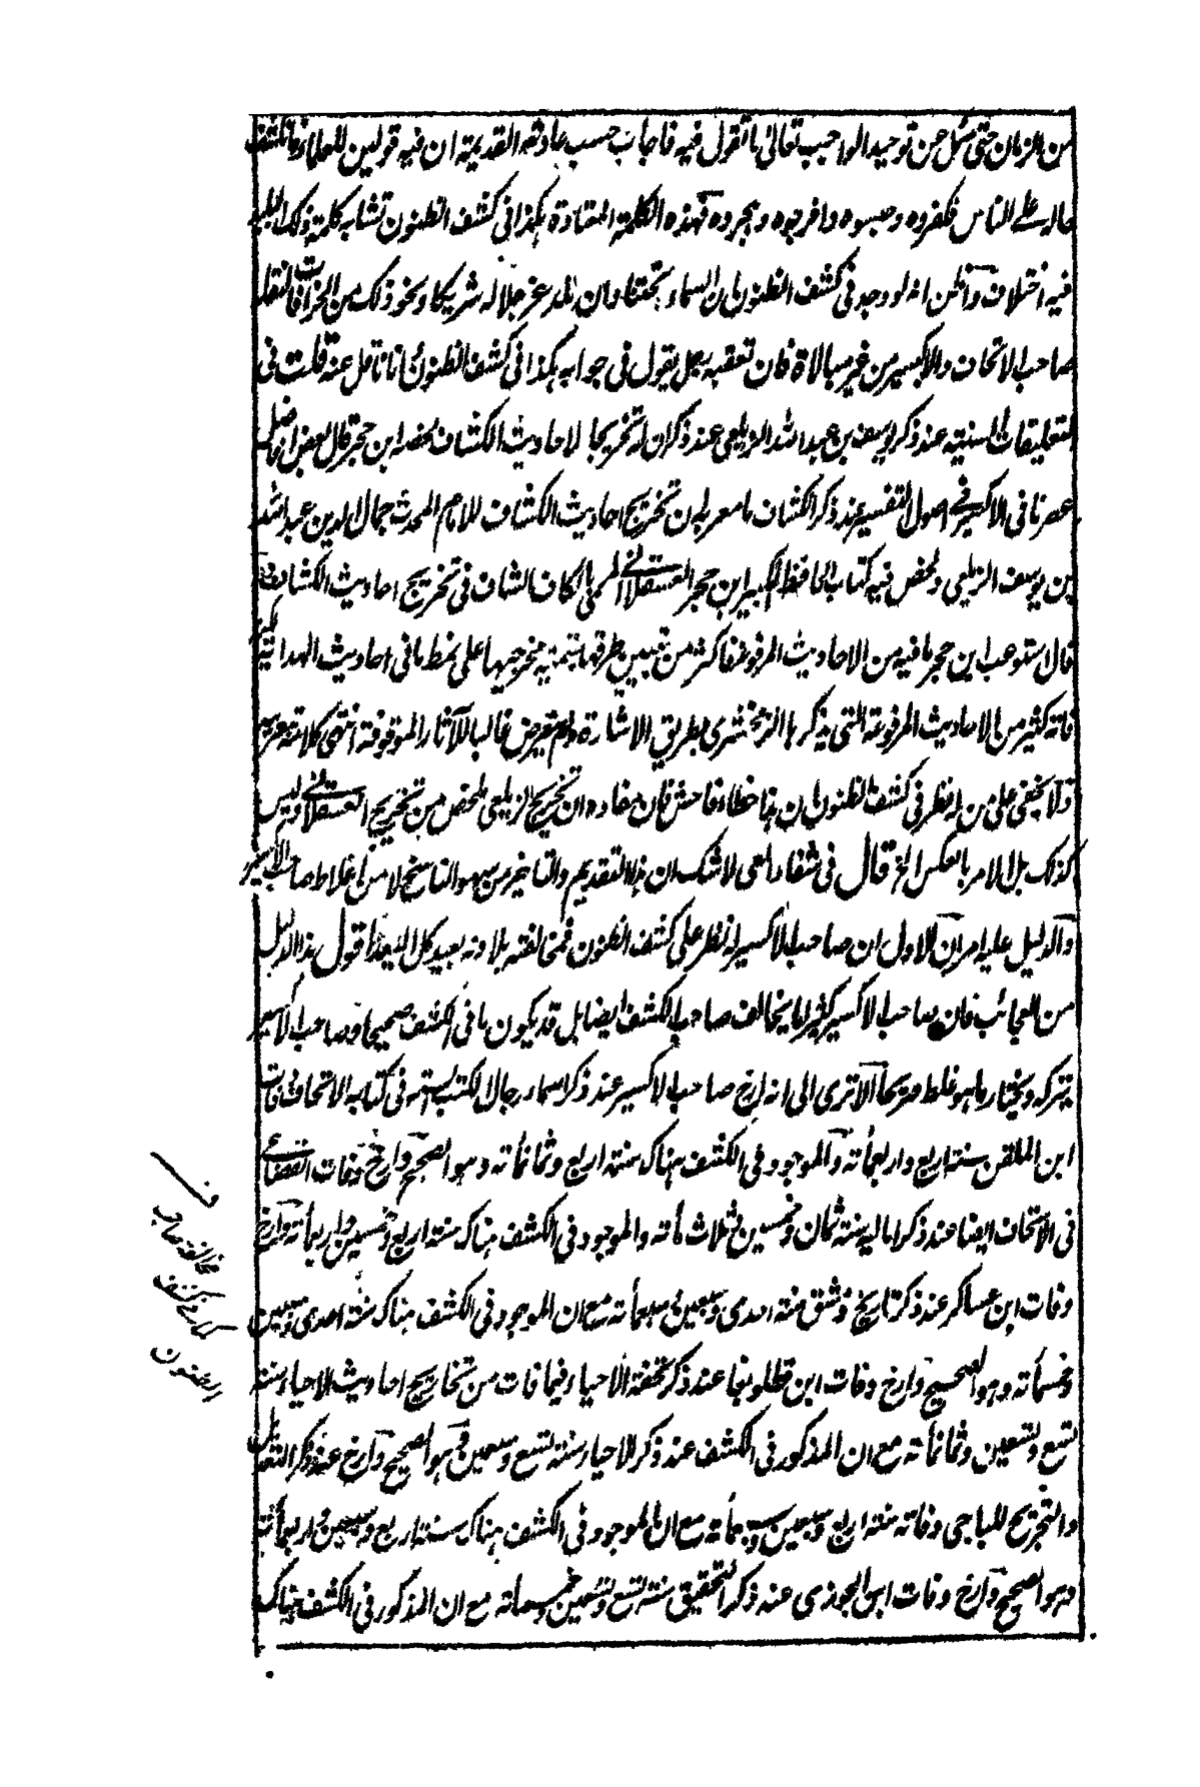 من الزمان حتى سئل عن توحيد الواجب تعالى ما تقول فيه فاجاب حسب عادته القديمة ان فيه قولين للعلماء فانكشف
حاله على الناس فكفروه وحبسوه واخرجوه وهجروه فهذه الكلمة المعتادة هكذا فى كشف الظنون تشابه كلمة ذلك البليد
فيه اختلاف واظن انه لو وجد فى كشف الظنون ان السماء تحتنا وان لله عز جلاله شريكا ونحو ذلك من الخرافات لنقله
صاحب الاتحاف والاكسير من غير مبالاة فان تعقبه رجل يقول فى جوابه هكذا فى كشف الظنون انا ناقل عنه قلت فى
التعليقات السنية عند ذكر يوسف بن عبد الله الزيلعى عند ذكر ان له تخريجا لاحاديث الكشاف لخصه ابن حجر قال بعض افاضل
عصرنا فى الاكسير فى اصول التفسير عند ذكر الكشاف ما معربه ان تخريج احاديث الكشاف للامام المحدث جمال الدين عبد الله
بن يوسف الزيلعى ولخص فيه كتاب الحافظ الكبير ابن حجر العسقلانى المسمى بالكاف الشاف فى تخريج احاديث الكشاف
قال استوعب ابن حجر ما فيه من الاحاديث المرفوعة فاكثر من تبيين طرقها وتسمية مخرجيها على نمط ما فى احاديث الهداية لكنه
فاته كثير من الاحاديث المرفوعة التى يذكرها الزمخشرى بطريق الاشارة ولم يتعرض غالبا للآثار الموقوفة انتهى كلامه معربا
ولا يخفى على من له نظر فى كشف الظنون ان هذا خطاء فاحش فان مفاده ان تخريج الزيلعى ملخص من تخريج العسقلانى وليس
كذلك بل الامر بالعكس الخ قال فى شفاء العى لا شك ان هذا التقديم والتاخير من سهو الناسخ لا من اغلاط صاحب الاكسير
والدليل عليه امران الاول ان صاحب الاكسير له نظر على كشف الظنون فمخالفته بلا وجه بعيد كل البعد اقول هذا الدليل
من العجائب فان صاحب الاكسير كثيرا ما يخالف صاحب الكشف ايضا بل قد يكون ما فى الكشف صحيحا وصاحب الاكسير
يتركه ويختار ما هو غلط صريحا الا ترى الى انه ارخ صاحب الاكسير عند ذكر اسماء رجال الكتب الستة فى كتابه الاتحاف وفات
ابن الملقن سنة اربع واربعمأته والموجود فى الكشف هناك سنة اربع وثمانمأته وهو الصحيح وارخ وفات القضاعى
فى الاتحاف ايضا عند ذكر اماليه سنة ثمان وخمسين وثلاث مأته والموجود فى الكشف هناك سنة اربع وخمسين واربعمأته وارخ
وفات ابن عساكر عند ذكر تاريخ دمشق سنة احدى وسبعين وسبعمأته مع ان الموجود فى الكشف هناك سنة احدى وسبعين
وخمسمأته وهو الصحيح وارخ وفات ابن قطلوبغا عند ذكر تحفة الاحياء فيما فات من تخاريج احاديث الاحياء سنة
تسع وتسعين وثمانمأته مع ان المذكور فى الكشف عند ذكر الاحياء سنة تسع وسبعين وهو الصحيح وارخ عند ذكر التعديل
والتجريح للباجى وفاته سنة اربع وسبعين وسبعمأته مع ان الموجود فى الكشف هناك سنة اربع وسبعين واربعمأته
وهو الصحيح وارخ وفات ابن الجوزى عند ذكر التحقيق سنة تسع وتسعين وخمسمأته مع ان المذكور فى الكشف هناك
ف
مخالفة صاحب
كشف
الظنون